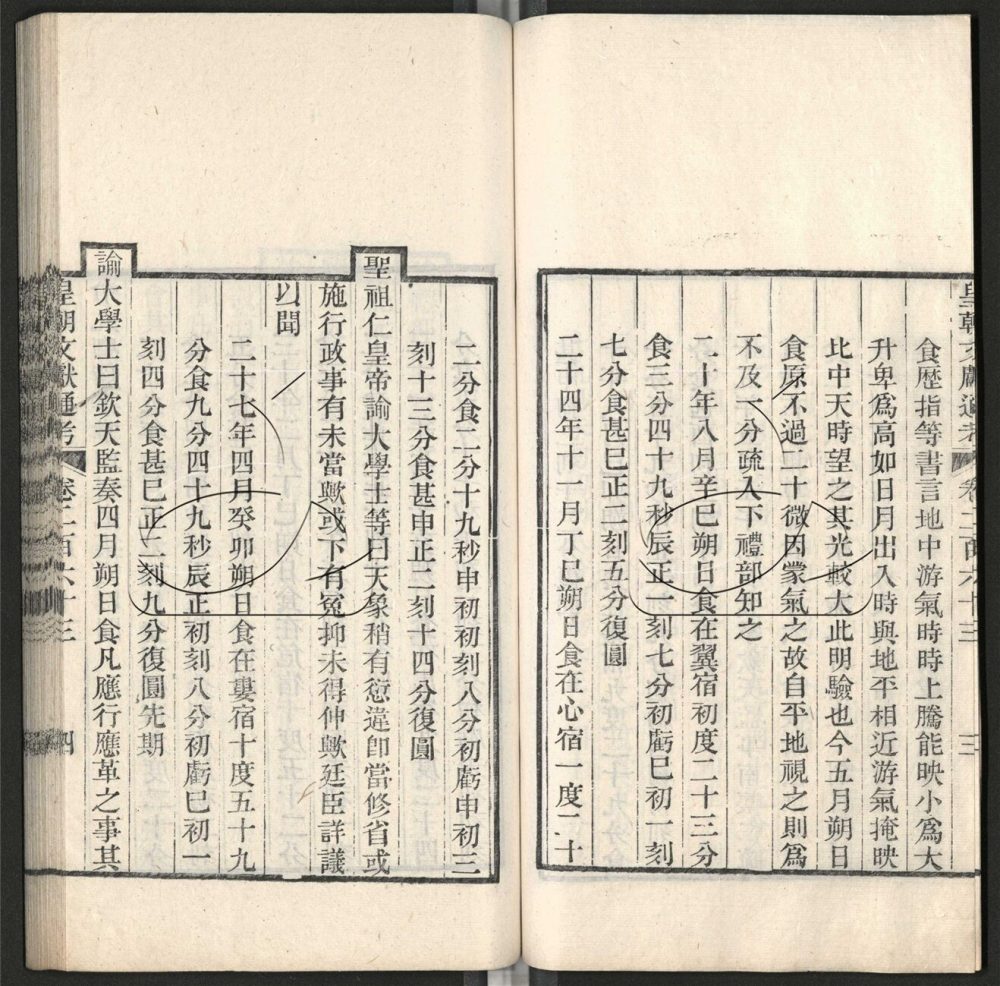 皇朝文獻通考 卷二百六十三 三
食歷指等書言地中游氣時時上騰能映小爲大
升卑爲高如日月出入時與地平相近游氣掩映
比中天時望之其光較大此明驗也今五月朔日
食原不過二十微因蒙氣之故自平地視之則爲
不及一分疏入下禮部知之
二十年八月辛巳朔日食在翼宿初度二十三分
食三分四十九秒辰正一刻七分初虧巳初一刻
七分食甚巳正二刻五分復圓
二十四年十一月丁巳朔日食在心宿一度二十
二分食二分十九秒申初初刻八分初虧申初三
刻十三分食甚申正二刻十四分復圓
聖祖仁皇帝諭大學士等曰天象稍有愆違卽當修省或
施行政事有未當歟或下有冤抑未得伸歟廷臣詳議
以聞
二十七年四月癸卯朔日食在婁宿十度五十九
分食九分四十九秒辰正初刻八分初虧巳初一
刻四分食甚巳正二刻九分復圓先期
諭大學士曰欽天監奏四月朔日食凡應行應革之事其
皇朝文獻通考 卷二百六十三 四